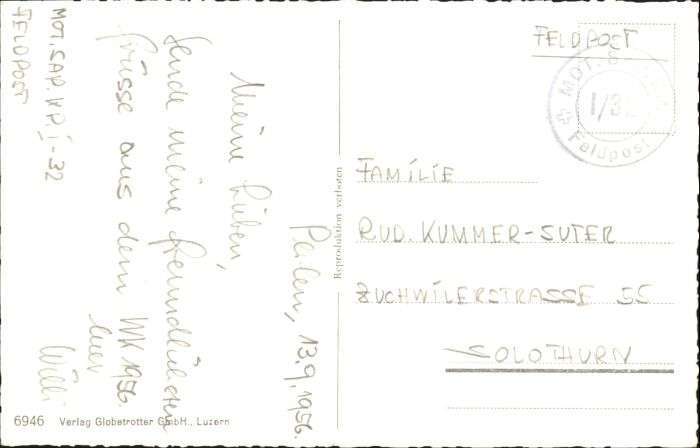 Perlen, 13.9.1956.
Meine Lieben,
sende meine freundlichen
Grüsse aus dem WK 1956.
Euer
Willi
MOT. SAP. KP. I-32
FELDPOST
6946 Verlag Globetrotter GmbH., Luzern
Reproduktion verboten
FELDPOST
MOT. S
I/32
Feldpost
FAMILIE
RUD. KUMMER-SUTER
ZUCHWILERSTRASSE 55
SOLOTHURN